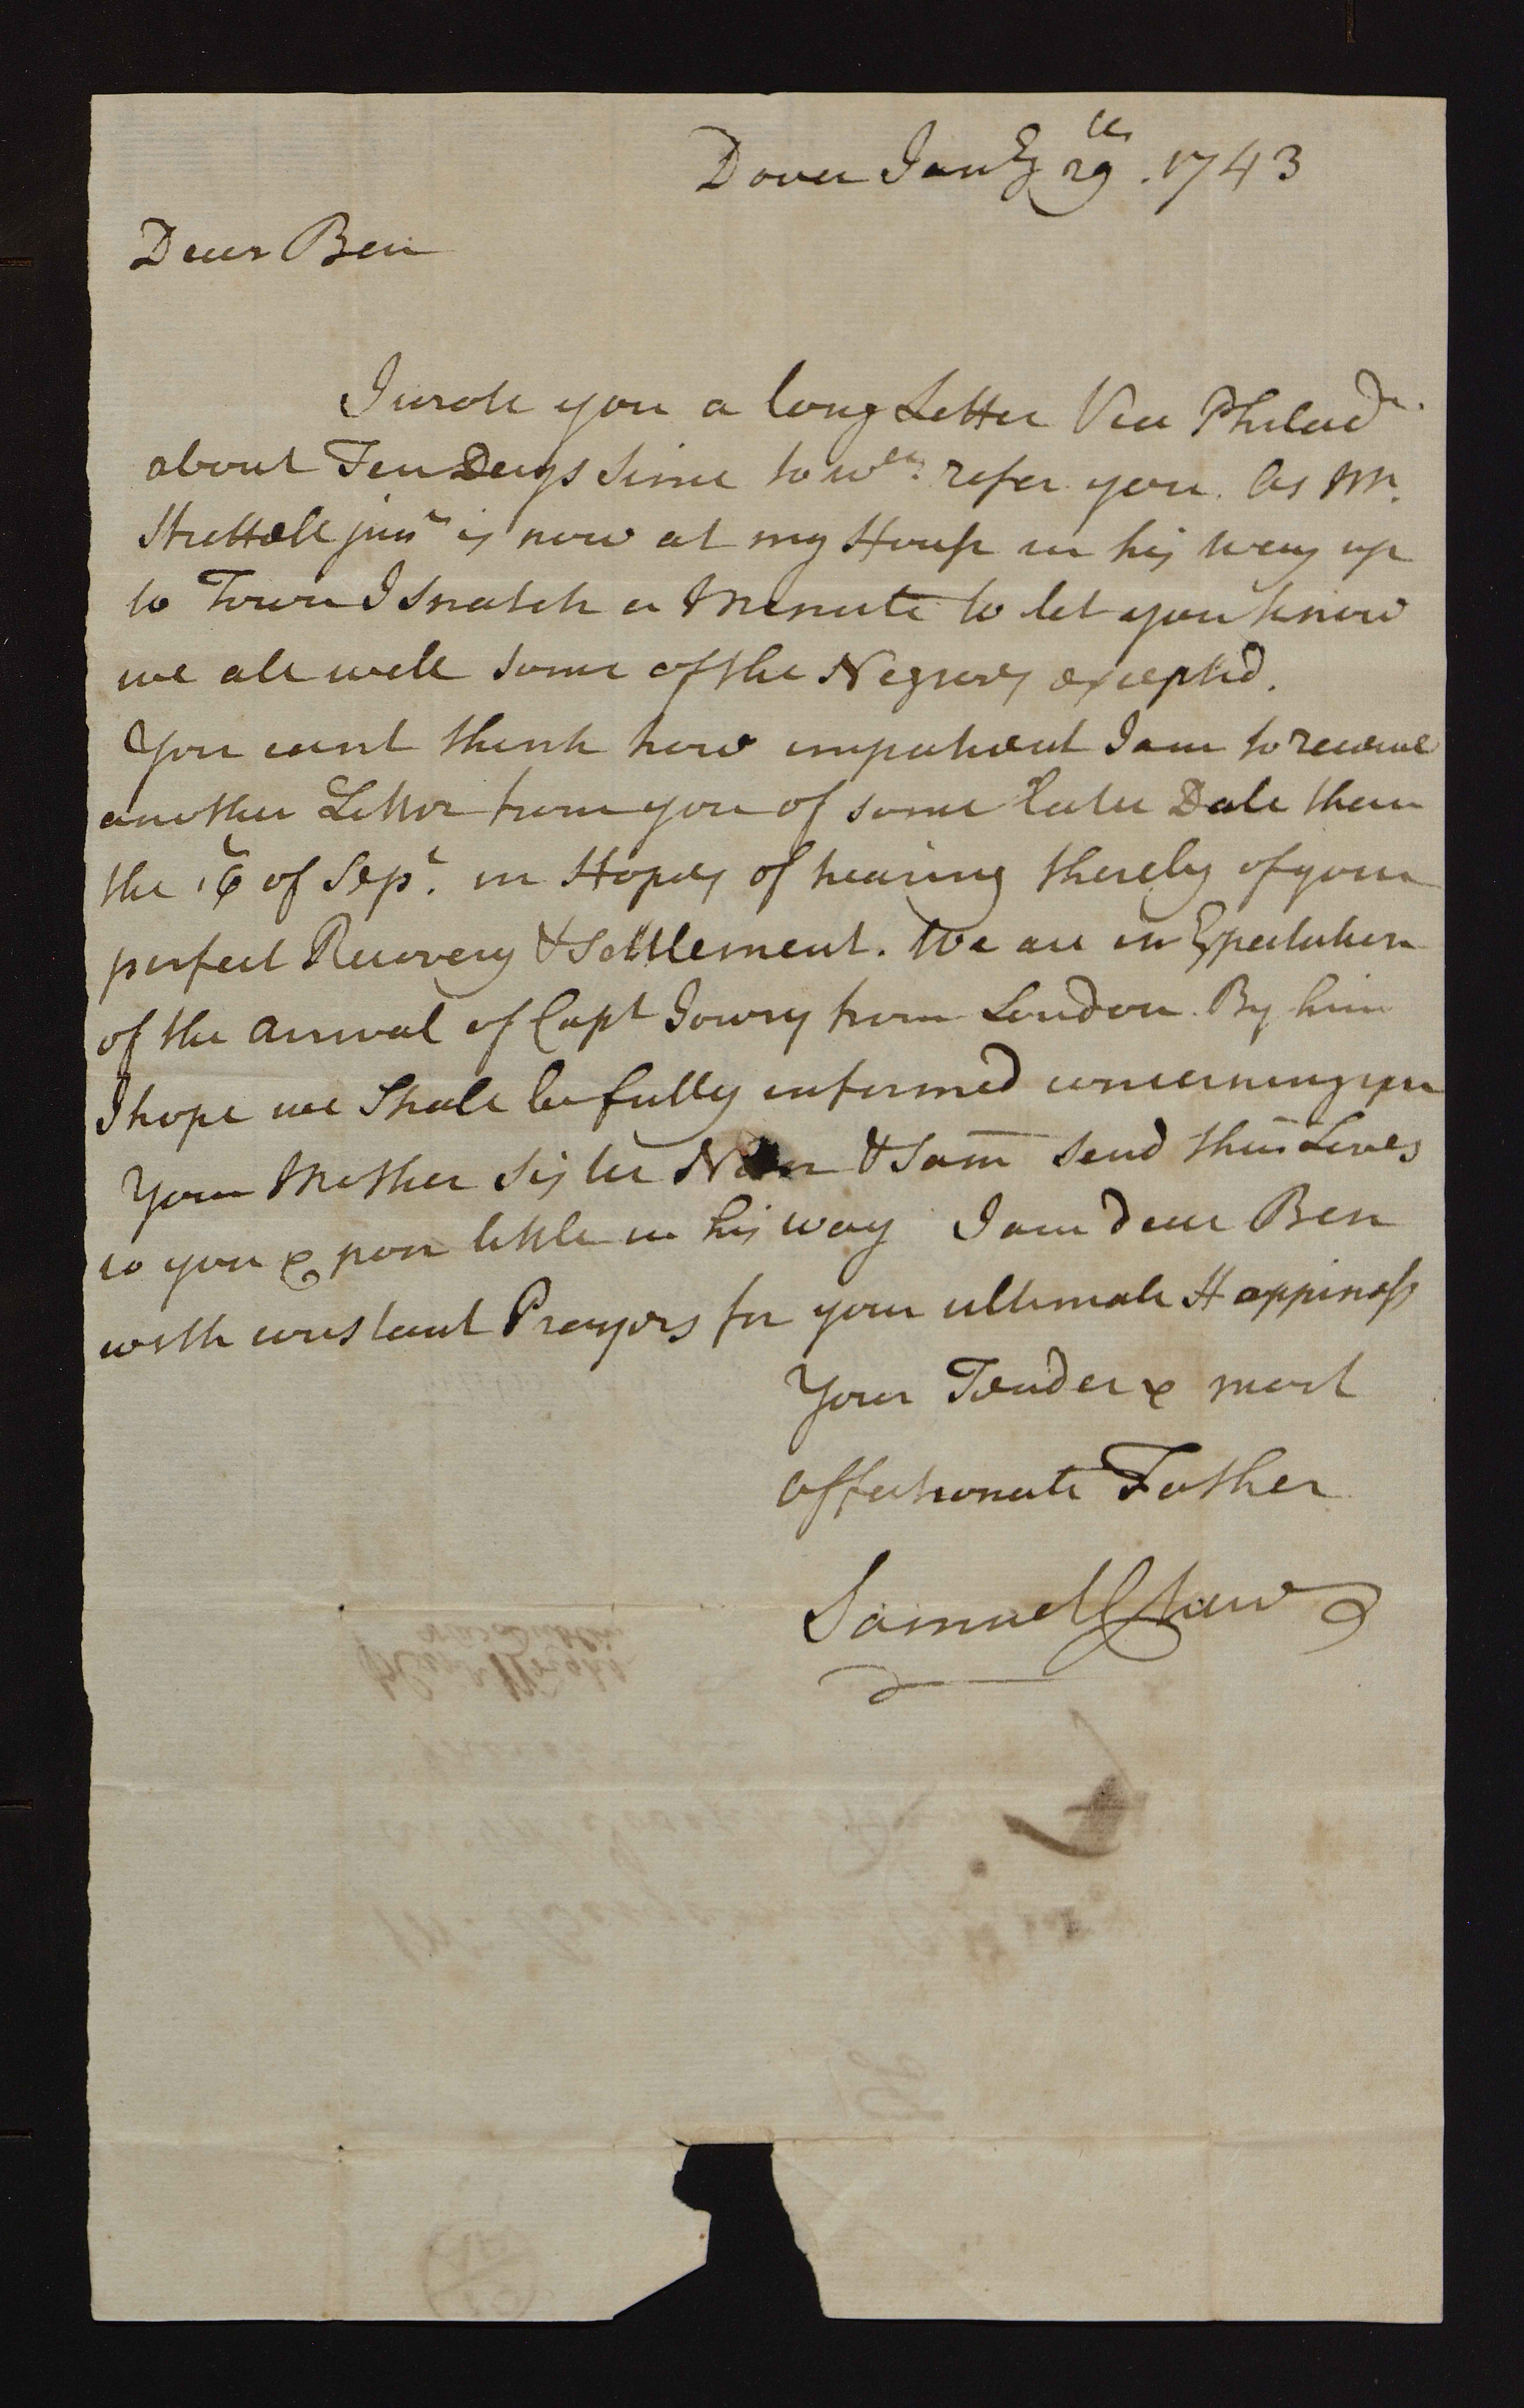 Dover Jan.y 29th. 1743
Dear Ben
I wrote you a long Letter Via Philad.a
about Ten Days since to wch. refer you. As Mr.
Strettell junr is now at my House in his way up
to Town I snatch a Minute to let you know
we all well some of the Negroes excepted.
You cant think how impatient I am to receive
another Letter from you of some later Date than
the 16 of Sepr. in Hopes of hearing thereby of your
perfect Recovery & Settlement. We are in Expectation
of the arrival of Capt Gowry from London. By him
I hope we shall be fully informed concerning you
Your Mother Sister & Sam send their Loves
to you & poor little in his way I am dear Ben
with constant Prayers for your ultimate Happiness
Your Tender & most
affectionate Father
Samuel Chew